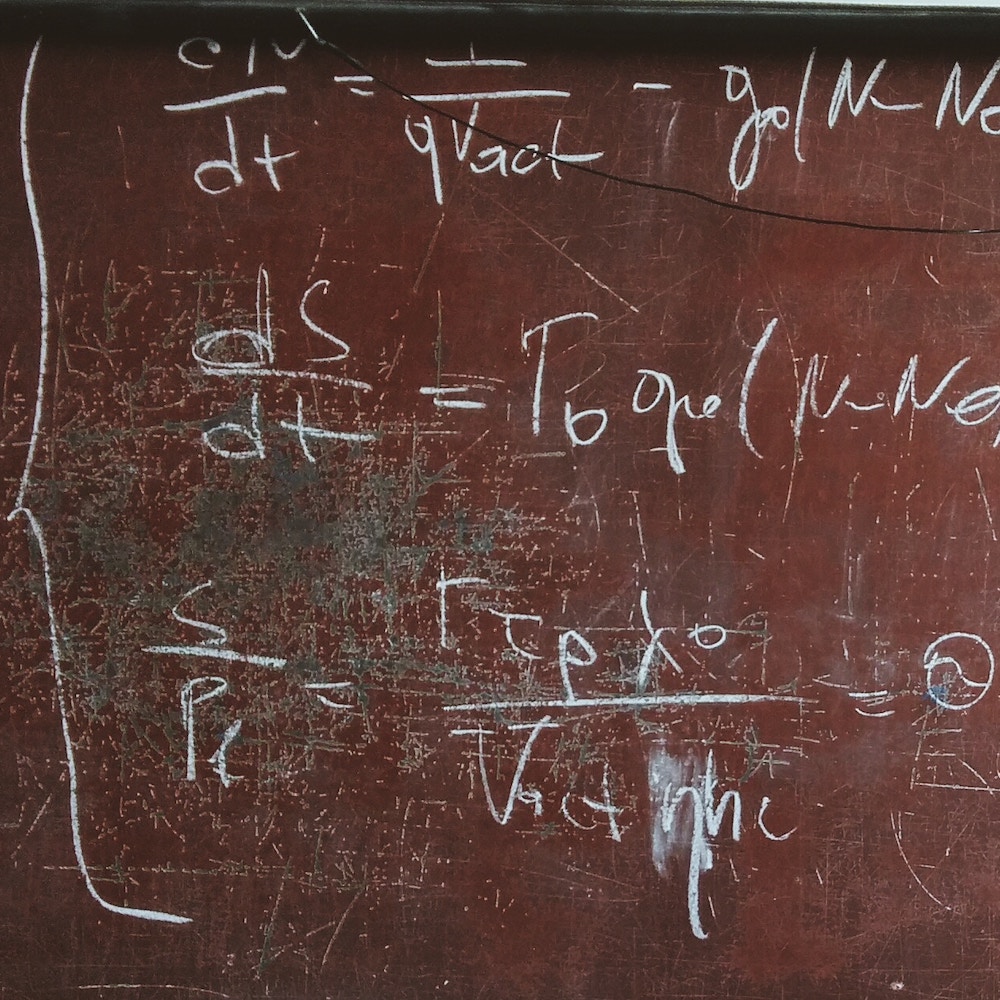 dN/dt = I/qVact - g0(N-N0
dS/dt = Γ0 g0(N-N0
S/Pf = Γτpλ0/Vact ηhc = ϑ